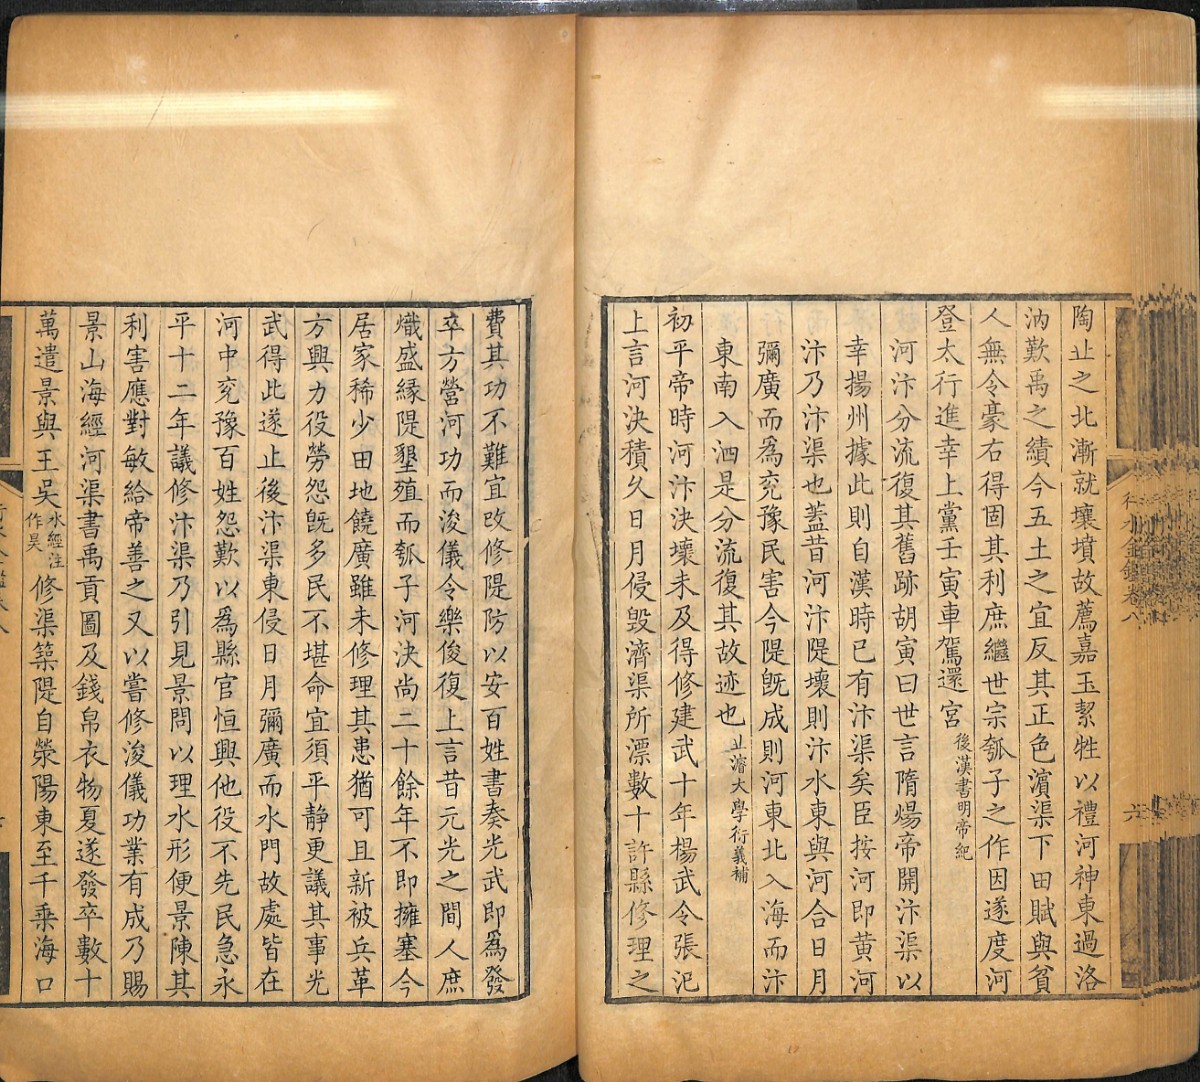 陶丘之北漸就壤墳故薦嘉玉絜牲以禮河神東過洛
汭歎禹之績今五土之宜反其正色濵渠下田賦與貧
人無令豪右得固其利庶繼世宗瓠子之作因遂度河
登太行進幸上黨壬寅車駕還宮後漢書明帝紀
河汴分流復其舊跡胡寅曰世言隋煬帝開汴渠以
幸揚州據此則自漢時已有汴渠矣臣按河即黄河
汴乃汴渠也蓋昔河汴隄壞則汴水東與河合日月
彌廣而爲兖豫民害今隄旣成則河東北入海而汴
東南入泗是分流復其故迹也丘濬大學衍義補
初平帝時河汴決壞未及得修建武十年楊武令張汜
上言河決積久日月侵毁濟渠所漂數十許縣修理之
費其功不難宜改修隄防以安百姓書奏光武即爲發
卒方營河功而浚儀令樂俊復上言昔元光之間人庶
熾盛緣隄墾殖而瓠子河決尚二十餘年不即擁塞今
居家稀少田地饒廣雖未修理其患猶可且新被兵革
方興力役勞怨旣多民不堪命宜須平静更議其事光
武得此遂止後汴渠東侵日月彌廣而水門故處皆在
河中兖豫百姓怨歎以爲縣官恒興他役不先民急永
平十二年議修汴渠乃引見景問以理水形便景陳其
利害應對敏給帝善之又以嘗修浚儀功業有成乃賜
景山海經河渠書禹貢圖及錢帛衣物夏遂發卒數十
萬遣景與王吳水經注作昊修渠築隄自滎陽東至千乗海口
行水金鑑卷八
六